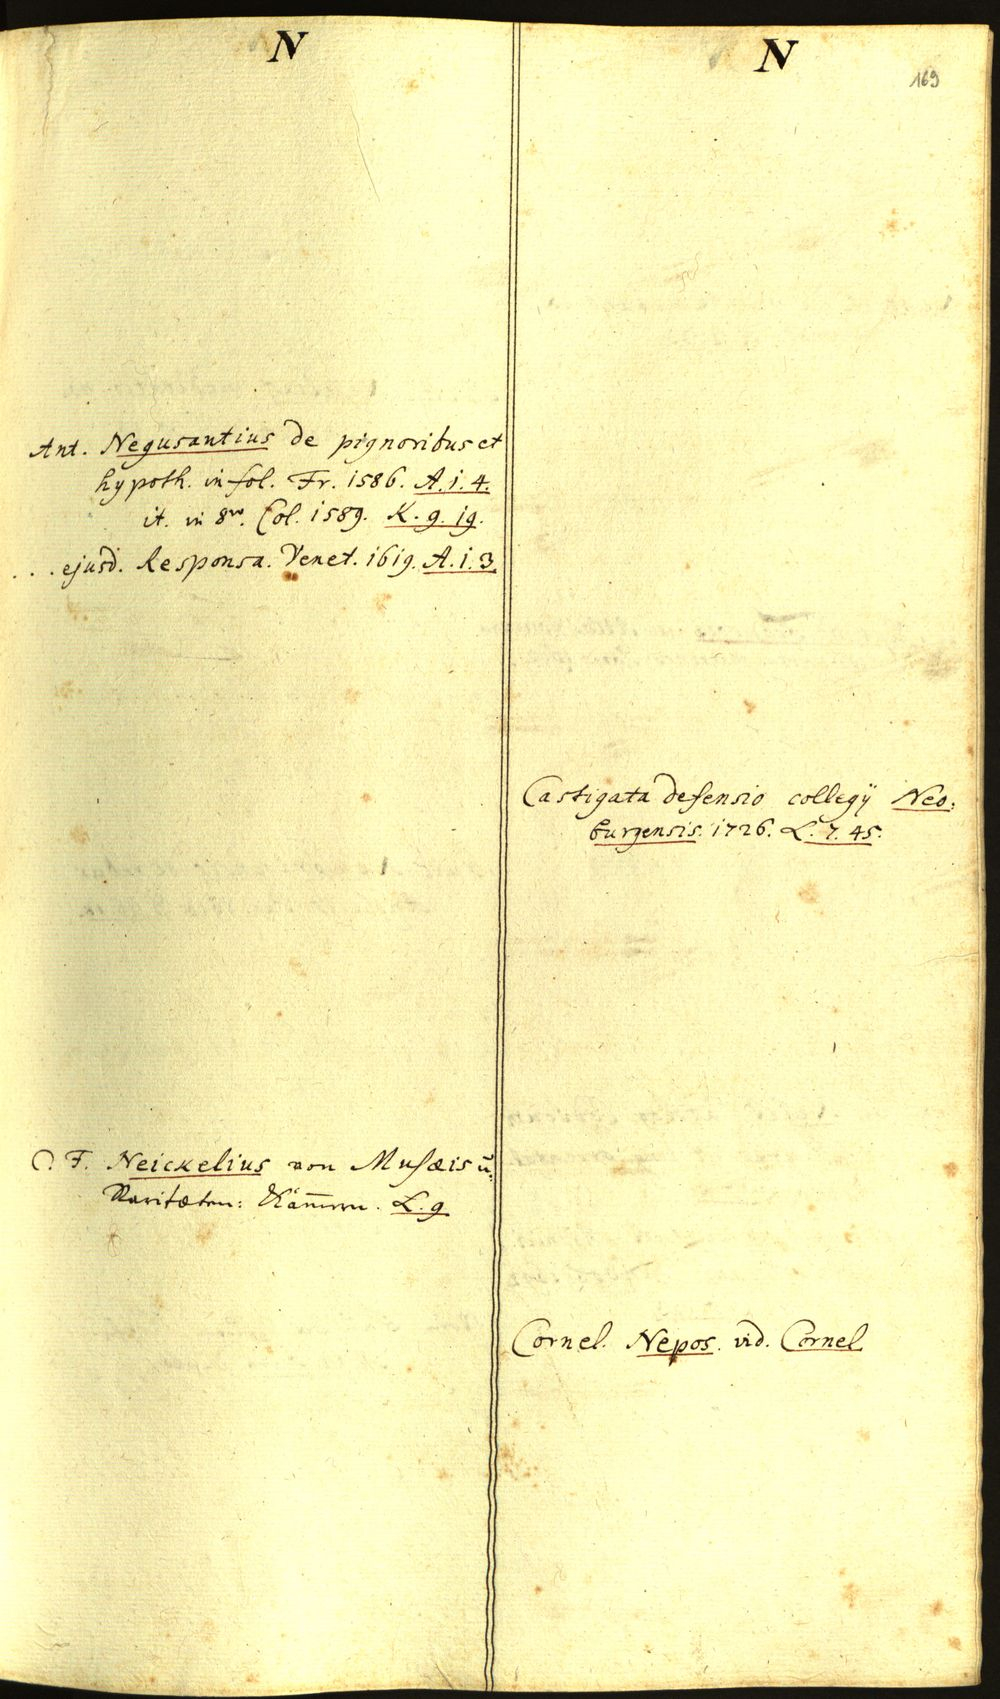 N
Ant. Negusantius de pignoribus et
hypoth. in fol. Fr. 1586. A. i. 4.
it. in 8vo. Col. 1589. K. 9. 19.
... ejusd. Responsa. Venet. 1619. A. i. 3
C. F. Neickelius von Musæis ū.
Raritæten: Kam̄ern. L. 9
N
169
Castigata defensio collegÿ Neo:
burgensis. 1726. L. 7. 45.
Cornel. Nepos. vid. Cornel